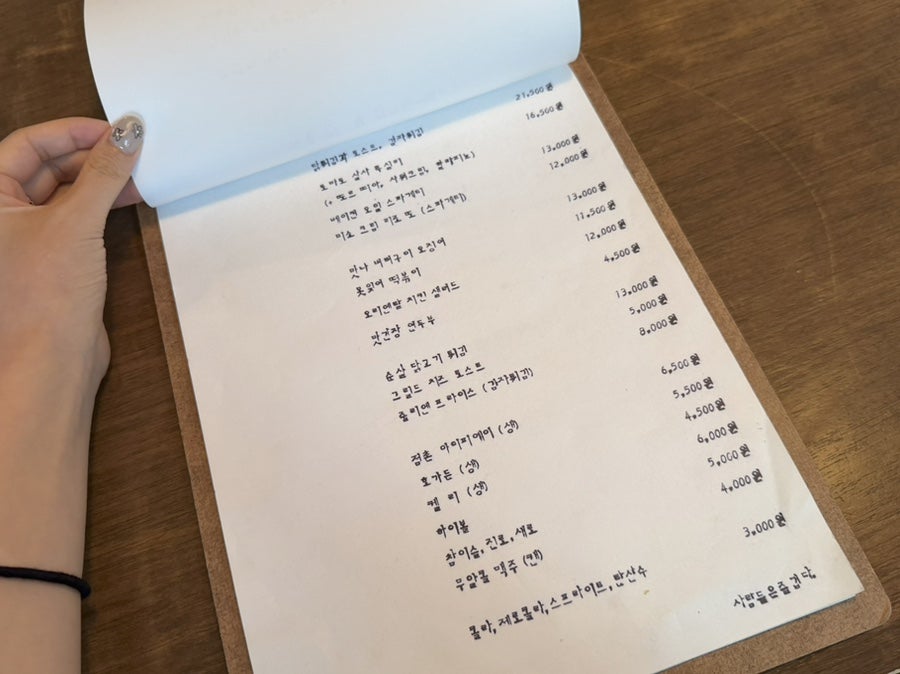 닭튀김과 토스트, 감자튀김 21,500원
토마토 살사 특심이 16,500원
(+ 또르띠아, 사워크림, 할라피뇨)
베이컨 오일 스파게티 13,000원
미소 크림 미로또 (스파게티) 12,000원
맛나 버터구이 오징어 13,000원
못잊어 떡볶이 11,500원
오리엔탈 치킨 샐러드 12,000원
맛간장 연두부 4,500원
순살 닭고기 튀김 13,000원
그릴드 치즈 토스트 5,000원
줄리엔 프라이스 (감자튀김) 8,000원
점촌 아이피에이 (생) 6,500원
호가든 (생) 5,500원
켈리 (생) 4,500원
하이볼 6,000원
참이슬, 진로, 새로 5,000원
무알콜 맥주 (캔) 4,000원
콜라, 제로콜라, 스프라이트, 탄산수 3,000원
사람들은즐겁다.